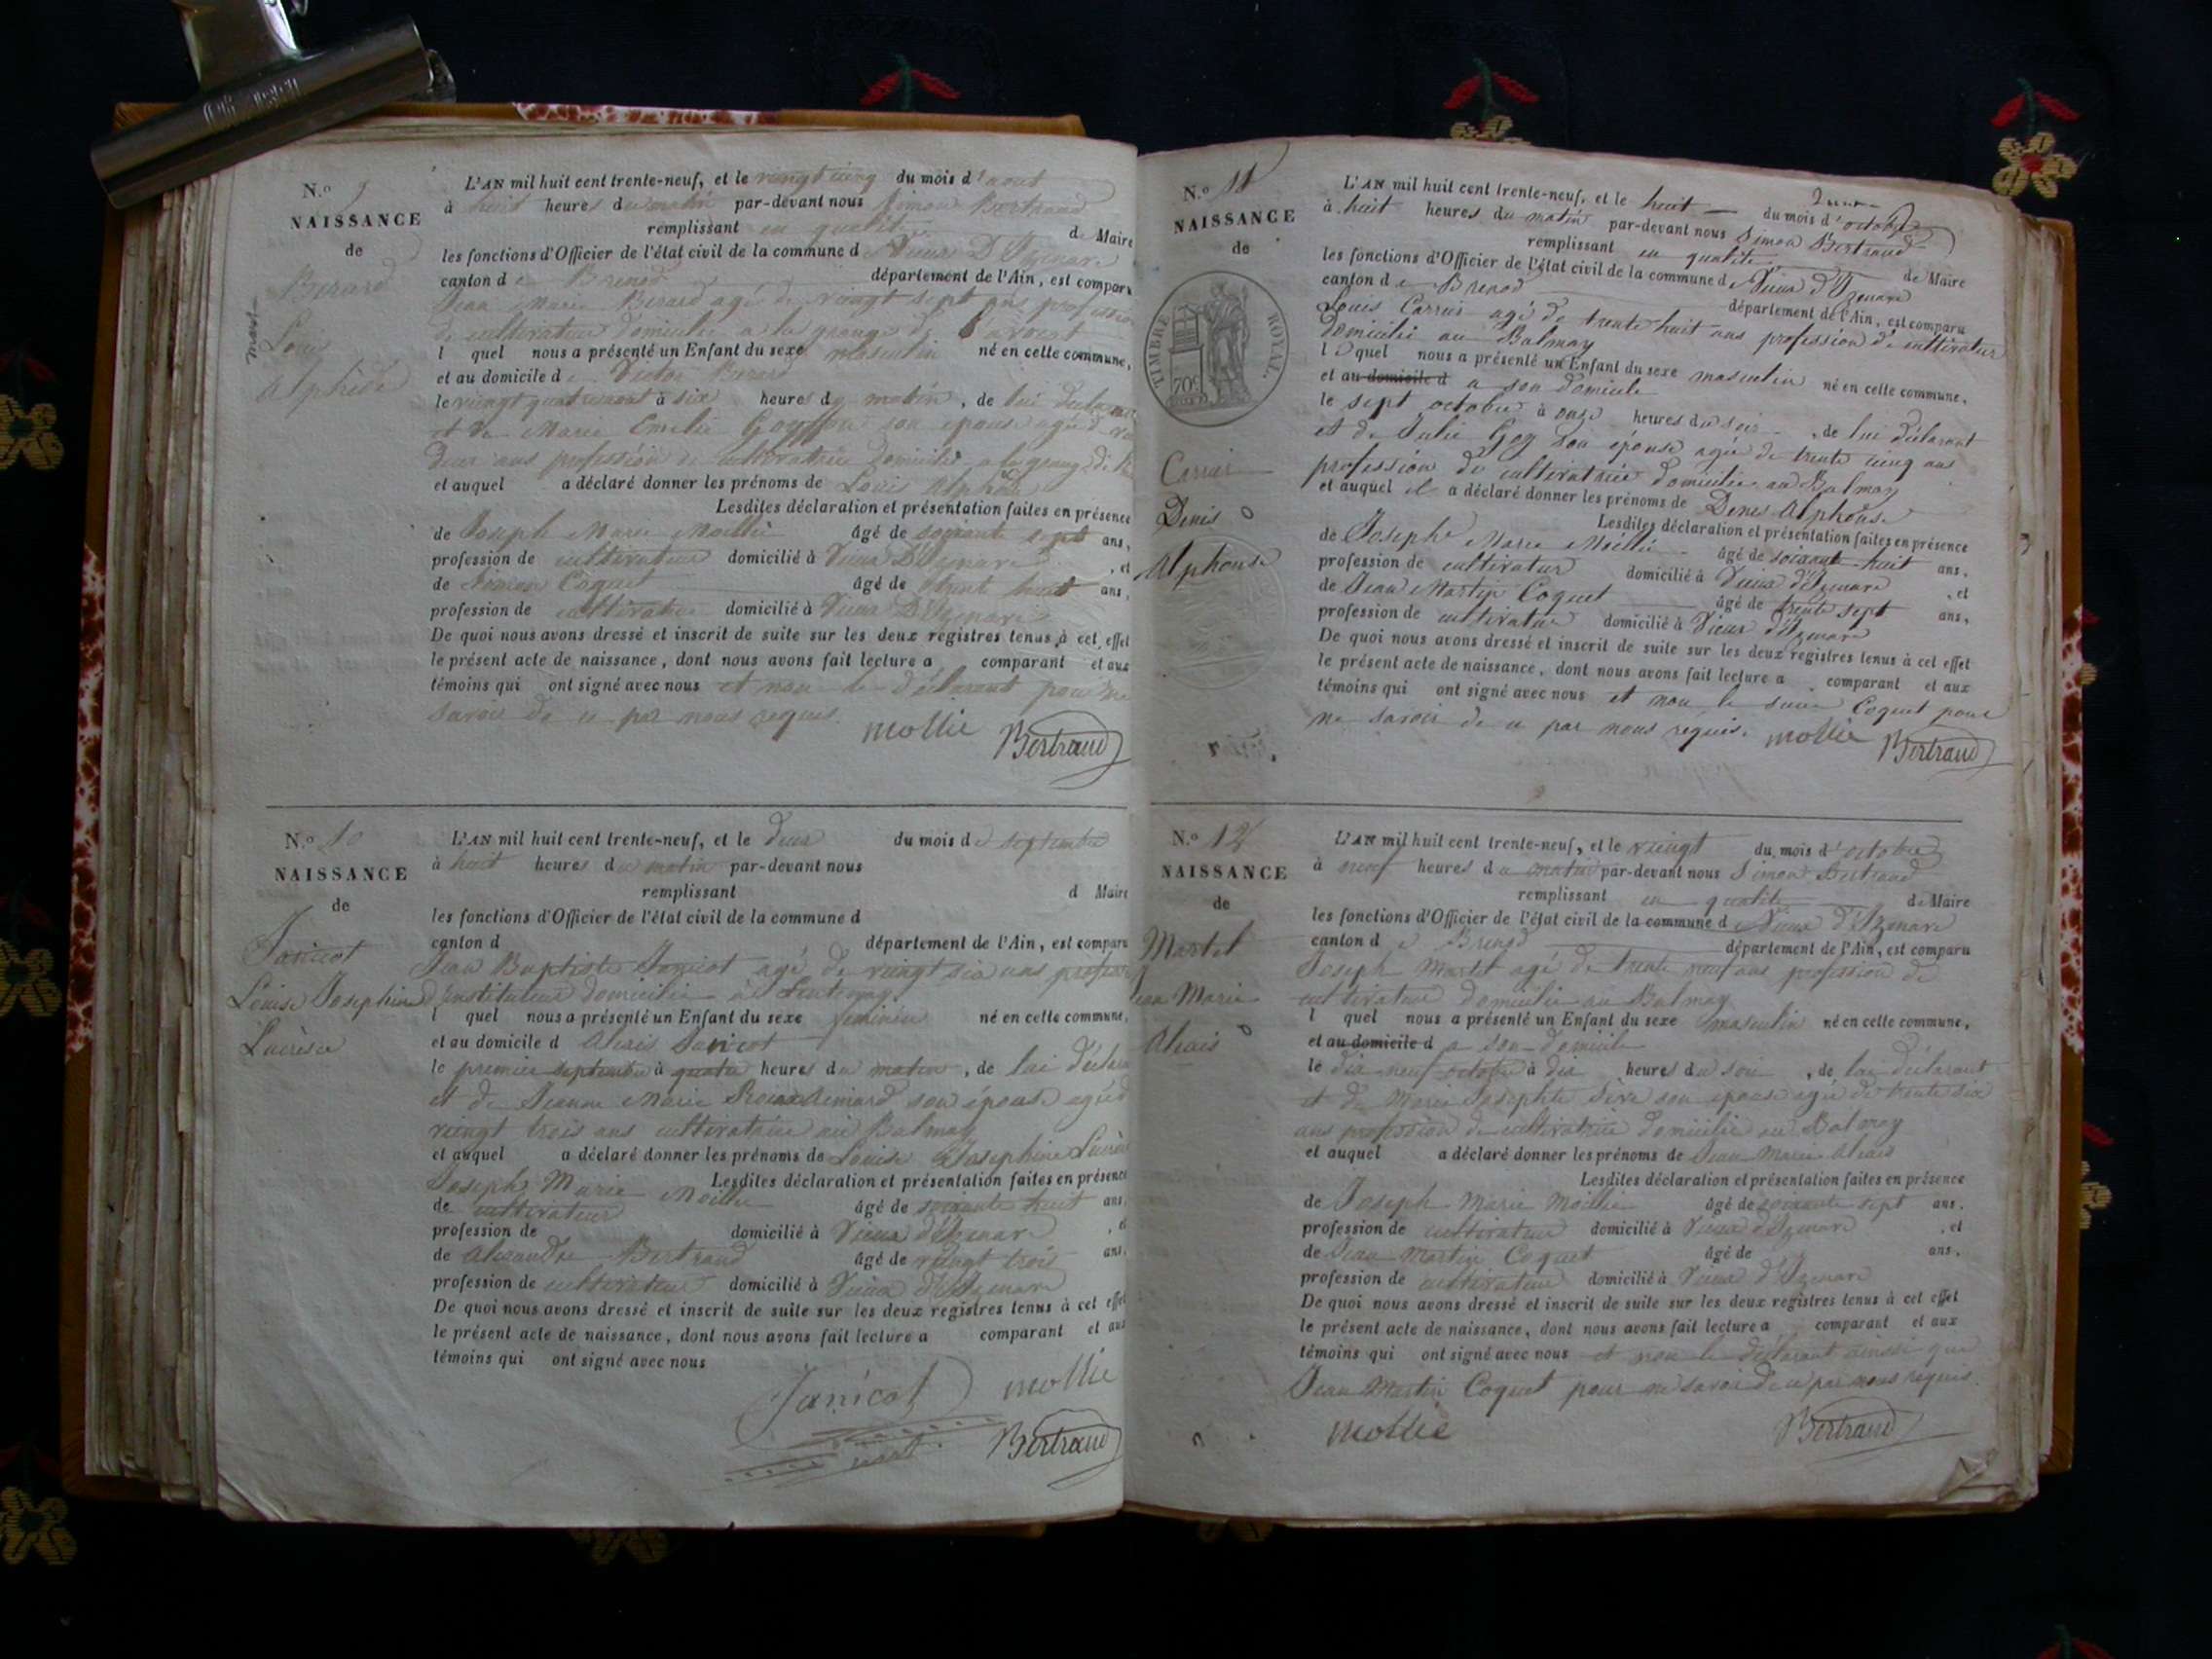 N.° 9
NAISSANCE
de
Berard
Louis
Alphiede
mort
L'AN mil huit cent trente-neuf, et le vingt cinq du mois d'aout
à huit heures du matin par-devant nous Simon Bertrand
remplissant en qualité de Maire
les fonctions d'Officier de l'état civil de la commune de Vieux D'Izenave
canton de Brenod département de l'Ain, est comparu
Jean Marie Berard agé de vingt sept ans profession
de cultivateur domicilié a la grange de
l quel nous a présenté un Enfant du sexe masculin né en cette commune,
et au domicile de Victor Berard
le vingt quatre aout à six heures du matin, de lui declarant
et de Marie Emelie son epouse agée de
deux ans profession de cultivatrice domicilié a la grange de
et auquel a déclaré donner les prénoms de Louis
Lesdites déclaration et présentation faites en présence
de Joseph Marie Moillie âgé de soixante sept ans,
profession de cultivateur domicilié à Vieux D'Izenave, et
de Simon Coquet âgé de trent huit ans,
profession de cultivateur domicilié à Vieux D'Izenave
De quoi nous avons dressé et inscrit de suite sur les deux registres tenus à cet effet
le présent acte de naissance, dont nous avons fait lecture a comparant et aux
témoins qui ont signé avec nous et non le déclarant pour ne
savoir de ce par nous requis.
mollie Bertrand
N.° 10
NAISSANCE
de
Janicot
Louise Josephine
Lucresce
L'AN mil huit cent trente-neuf, et le deux du mois de septembre
à huit heures du matin par-devant nous
remplissant d Maire
les fonctions d'Officier de l'état civil de la commune d
canton d département de l'Ain, est comparu
Jean Baptiste Janicot agé de vingt six ans profession
d'instituteur domicilié à Lentenay
l quel nous a présenté un Enfant du sexe feminin né en cette commune,
et au domicile d Alexis Janicot
le premier septembre à quatre heures du matin, de lui déclarant
et de Jeanne Marie son épouse agé d
vingt trois ans cultivatrice au Balmay
et auquel a déclaré donner les prénoms de Louise Josephine
Lesdites déclaration et présentation faites en présence
Joseph Marie Moillie
de cultivateur âgé de soixante huit ans,
profession de domicilié à Vieux d'Izenave, et
de Alexandre Bertrand âgé de vingt trois ans,
profession de cultivateur domicilié à Vieux d'Izenave
De quoi nous avons dressé et inscrit de suite sur les deux registres tenus à cet effet
le présent acte de naissance, dont nous avons fait lecture a comparant et aux
témoins qui ont signé avec nous
Janicot mollie
Bertrand
N.° 11
NAISSANCE
de
TIMBRE ROYAL.
70c
Carrier
Denis
Alphonse
L'AN mil huit cent trente-neuf, et le huit du mois d'octobre
à huit heures du matin par-devant nous Simon Bertrand
remplissant en qualité de Maire
les fonctions d'Officier de l'état civil de la commune de Vieux d'Izenave
canton de Brenod département de l'Ain, est comparu
Louis Carrier agé de trente huit ans profession de cultivateur
Domicilié au Balmay
l e quel nous a présenté un Enfant du sexe masculin né en cette commune,
et au domicile d a son domicile
le sept octobre à onze heures du soir, de lui déclarant
et de Julie Goy son épouse agée de trente cinq ans
profession de cultivatrice domicilie au Balmay
et auquel il a déclaré donner les prénoms de Denis Alphonse
Lesdites déclaration et présentation faites en présence
de Joseph Marie Moillié âgé de soixante huit ans,
profession de cultivateur domicilié à Vieux d'Izenave, et
de Jean Martin Coquet âgé de trente sept ans,
profession de cultivateur domicilié à Vieux d'Izenave
De quoi nous avons dressé et inscrit de suite sur les deux registres tenus à cet effet
le présent acte de naissance, dont nous avons fait lecture a comparant et aux
témoins qui ont signé avec nous et non le Coquet pour
ne savoir de ce par nous requis. mollie Bertrand
N.° 12
NAISSANCE
de
Martel
Jean Marie
Alexis
L'AN mil huit cent trente-neuf, et le vingt du mois d'octobre
à neuf heures du matin par-devant nous Simon Bertrand
remplissant en qualité de Maire
les fonctions d'Officier de l'état civil de la commune de Vieux d'Izenave
canton de Brenod département de l'Ain, est comparu
Joseph Martel agé de trente neuf ans profession de
cultivateur domicilie au Balmay
l quel nous a présenté un Enfant du sexe masculin né en cette commune,
et au domicile d a son domicile
le dix neuf octobre à dix heures du soir, de lui déclarant
et de Marie Josephte son epouse agé de trente six
ans profession de cultivatrice domicilie au Balmay
et auquel a déclaré donner les prénoms de Jean Marie Alexis
Lesdites déclaration et présentation faites en présence
de Joseph Marie Moillie âgé de soixante sept ans,
profession de cultivateur domicilié à Vieux d'Izenave, et
de Jean Martin Coquet âgé de ans,
profession de cultivateur domicilié à Vieux d'Izenave
De quoi nous avons dressé et inscrit de suite sur les deux registres tenus à cet effet
le présent acte de naissance, dont nous avons fait lecture a comparant et aux
témoins qui ont signé avec nous et non le déclarant ainsi que
Jean Martin Coquet pour ne savoir de ce par nous requis.
mollie Bertrand